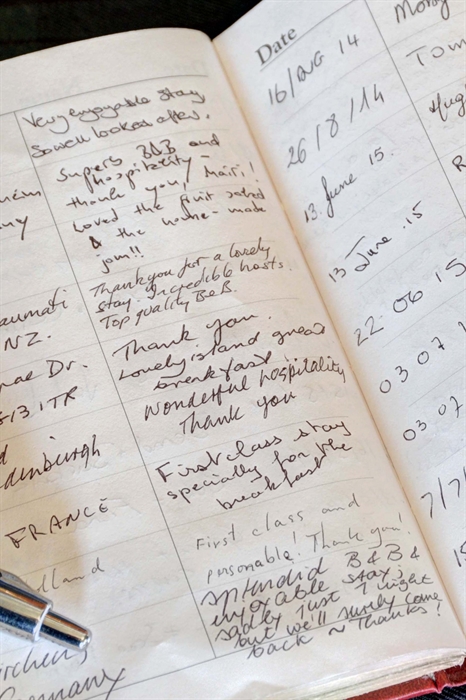 Very enjoyable stay
So well looked after.
Superb B&B and
hospitality -
thank you, Mairi!
Loved the fruit salad
& the home-made
jam!!
Thank you for a lovely
stay. Incredible hosts.
Top quality B&B.
Thank you.
Lovely island great
breakfast
Wonderful hospitality
Thank you
First class stay
specially for the
breakfast
First class and
personable! Thank you!
Splendid B&B &
enjoyable stay;
sadly just 1 night
but we'll surely come
back ~ Thanks!
NZ.
Dr.
FRANCE
Germany
Date
16/AUG 14
26/8/14
13 June 15.
13 June . 15
22 06 15
03 07
03 07
7/7/